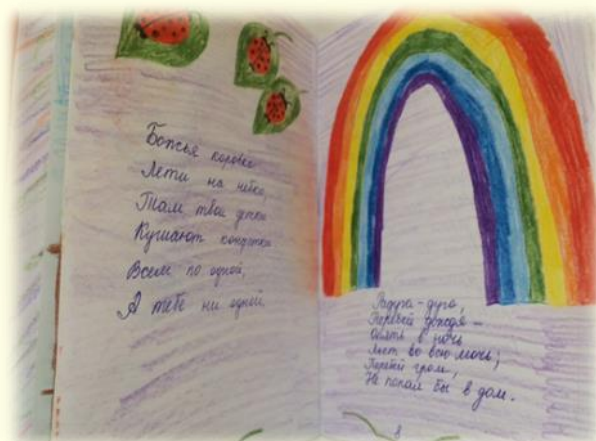 Божья коровка
Лети на небко,
Там твои детки
Кушают конфетки
Всем по одной,
А тебе ни одной.
Радуга-дуга,
Перебей дождя -
Опять в ночь
Льёт во всю мочь;
Перебей гром,
Не попал бы в дом.
8